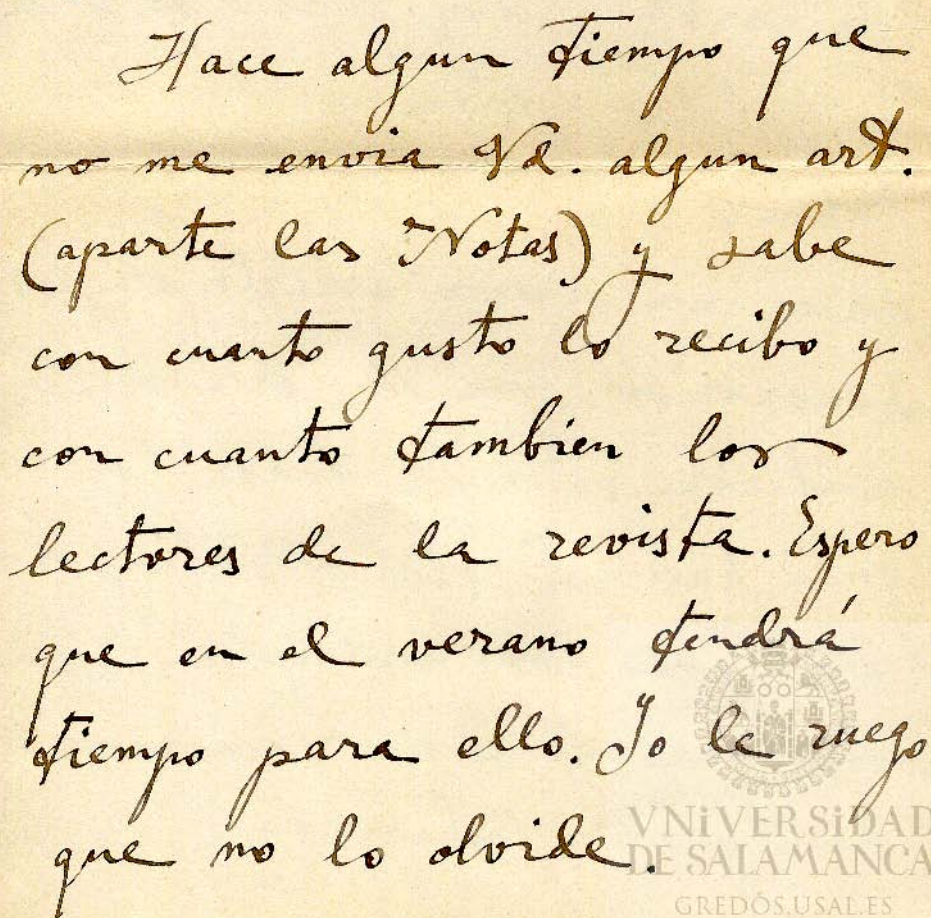 Hace algun tiempo que
no me envia Vd. algun art.
(aparte las Notas) y sabe
con cuanto gusto lo recibo y
con cuanto tambien los
lectores de la revista. Espero
que en el verano tendrá
tiempo para ello. Yo le ruego
que no lo olvide.
VNiVERSiDAD
DE SALAMANCA
GREDOS.USAL.ES